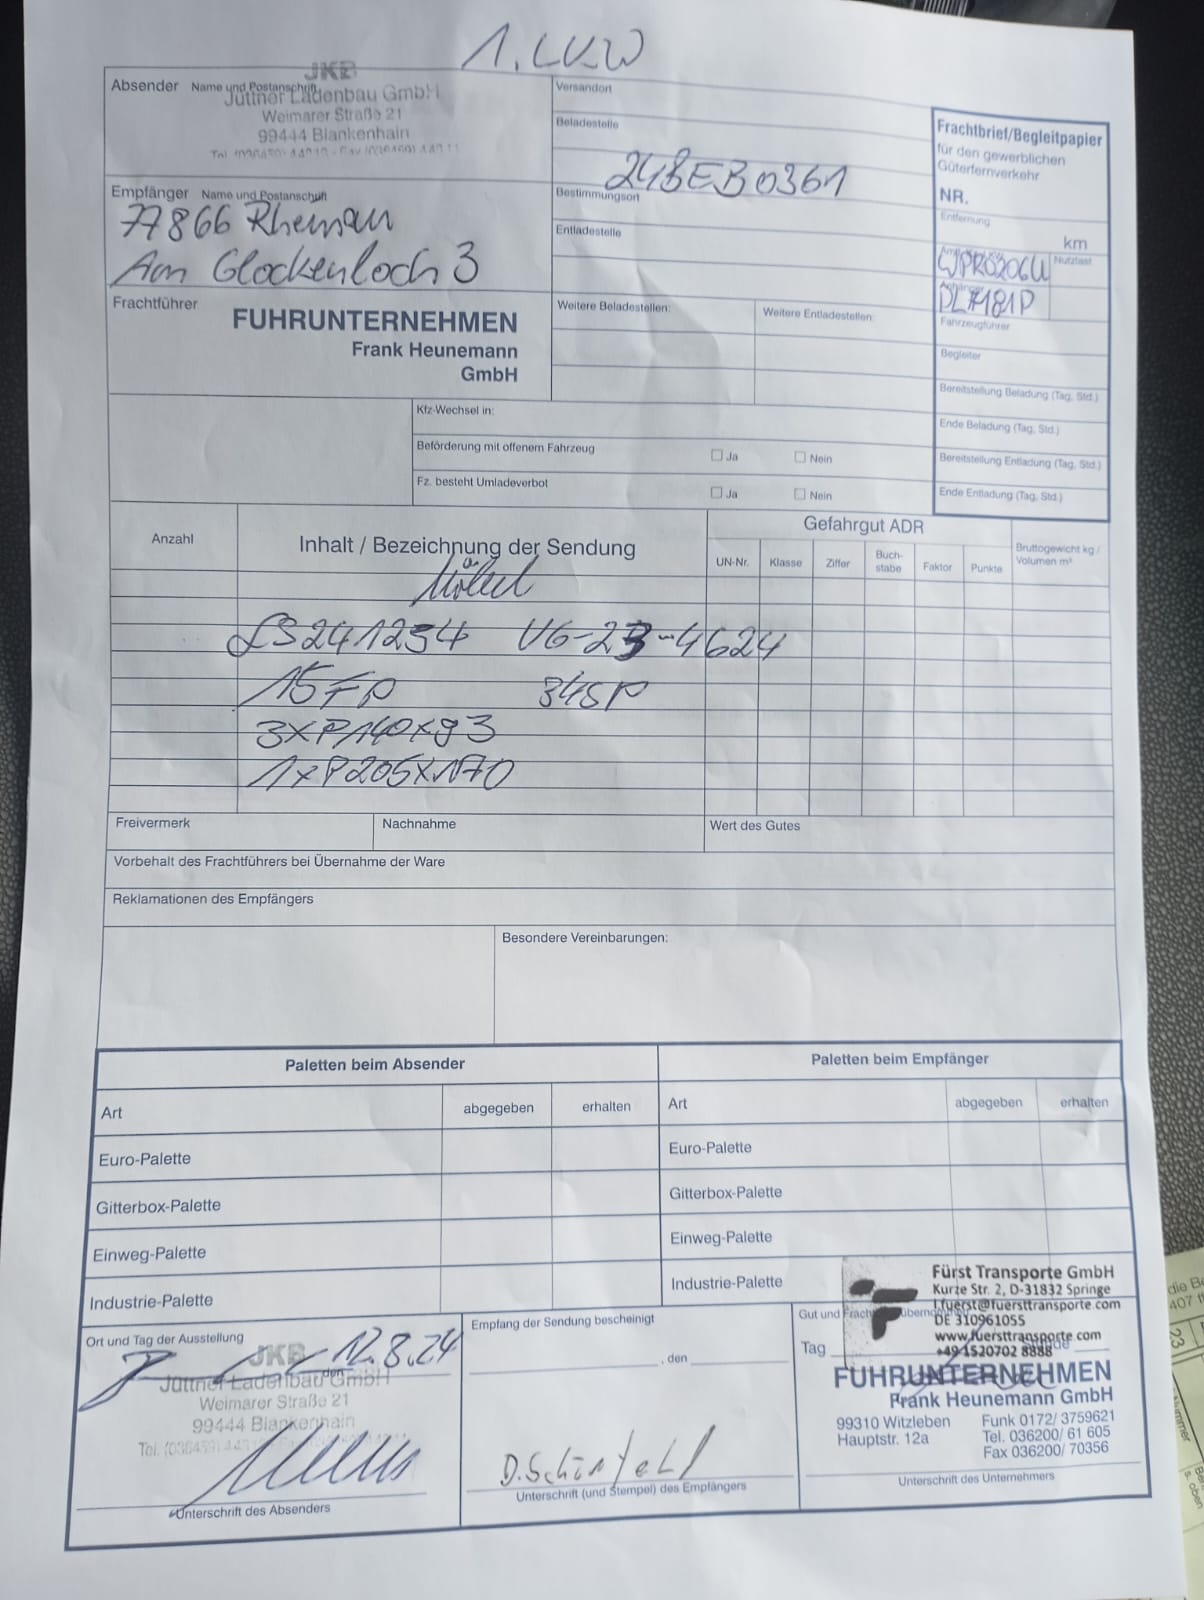 1. LKW
Absender Name und Postanschrift
JKB
Jüttner Ladenbau GmbH
Weimarer Straße 21
99444 Blankenhain
Versandort
Beladestelle
24BEB0361
Bestimmungsort
Entladestelle
Frachtbrief/Begleitpapier
für den gewerblichen
Güterfernverkehr
NR.
Entfernung
km
Nutzlast
WPR0206U
Anhänger
DL7181P
Fahrzeugführer
Begleiter
Bereitstellung Beladung (Tag, Std.)
Ende Beladung (Tag, Std.)
Bereitstellung Entladung (Tag, Std.)
Ende Entladung (Tag, Std.)
Empfänger Name und Postanschrift
77866 Rheinau
Am Glockenloch 3
Frachtführer
FUHRUNTERNEHMEN
Frank Heunemann
GmbH
Weitere Beladestellen:
Weitere Entladestellen:
Kfz-Wechsel in:
Beförderung mit offenem Fahrzeug Ja Nein
Fz. besteht Umladeverbot Ja Nein
Anzahl
Inhalt / Bezeichnung der Sendung
Gefahrgut ADR
UN-Nr. Klasse Ziffer Buch-
stabe Faktor Punkte
Bruttogewicht kg /
Volumen m³
Möbel
LS241254 V6-23-4624
15FP 34SP
3XP140X93
1XP205X170
Freivermerk
Nachnahme
Wert des Gutes
Vorbehalt des Frachtführers bei Übernahme der Ware
Reklamationen des Empfängers
Besondere Vereinbarungen:
Paletten beim Absender
Paletten beim Empfänger
Art abgegeben erhalten Art abgegeben erhalten
Euro-Palette Euro-Palette
Gitterbox-Palette Gitterbox-Palette
Einweg-Palette Einweg-Palette
Industrie-Palette Industrie-Palette
Ort und Tag der Ausstellung
12.8.24
JKB
den
Jüttner Ladenbau GmbH
Weimarer Straße 21
99444 Blankenhain
Unterschrift des Absenders
Empfang der Sendung bescheinigt
, den
D. Schinfehl
Unterschrift (und Stempel) des Empfängers
Gut und
Tag
Fürst Transporte GmbH
Kurze Str. 2, D-31832 Springe
l.fuerst@fuersttransporte.com
DE 310961055
www.fuersttransporte.com
+49 1520702 8888
FUHRUNTERNEHMEN
Frank Heunemann GmbH
99310 Witzleben Funk 0172/ 3759621
Hauptstr. 12a Tel. 036200/ 61 605
Fax 036200/ 70356
Unterschrift des Unternehmers